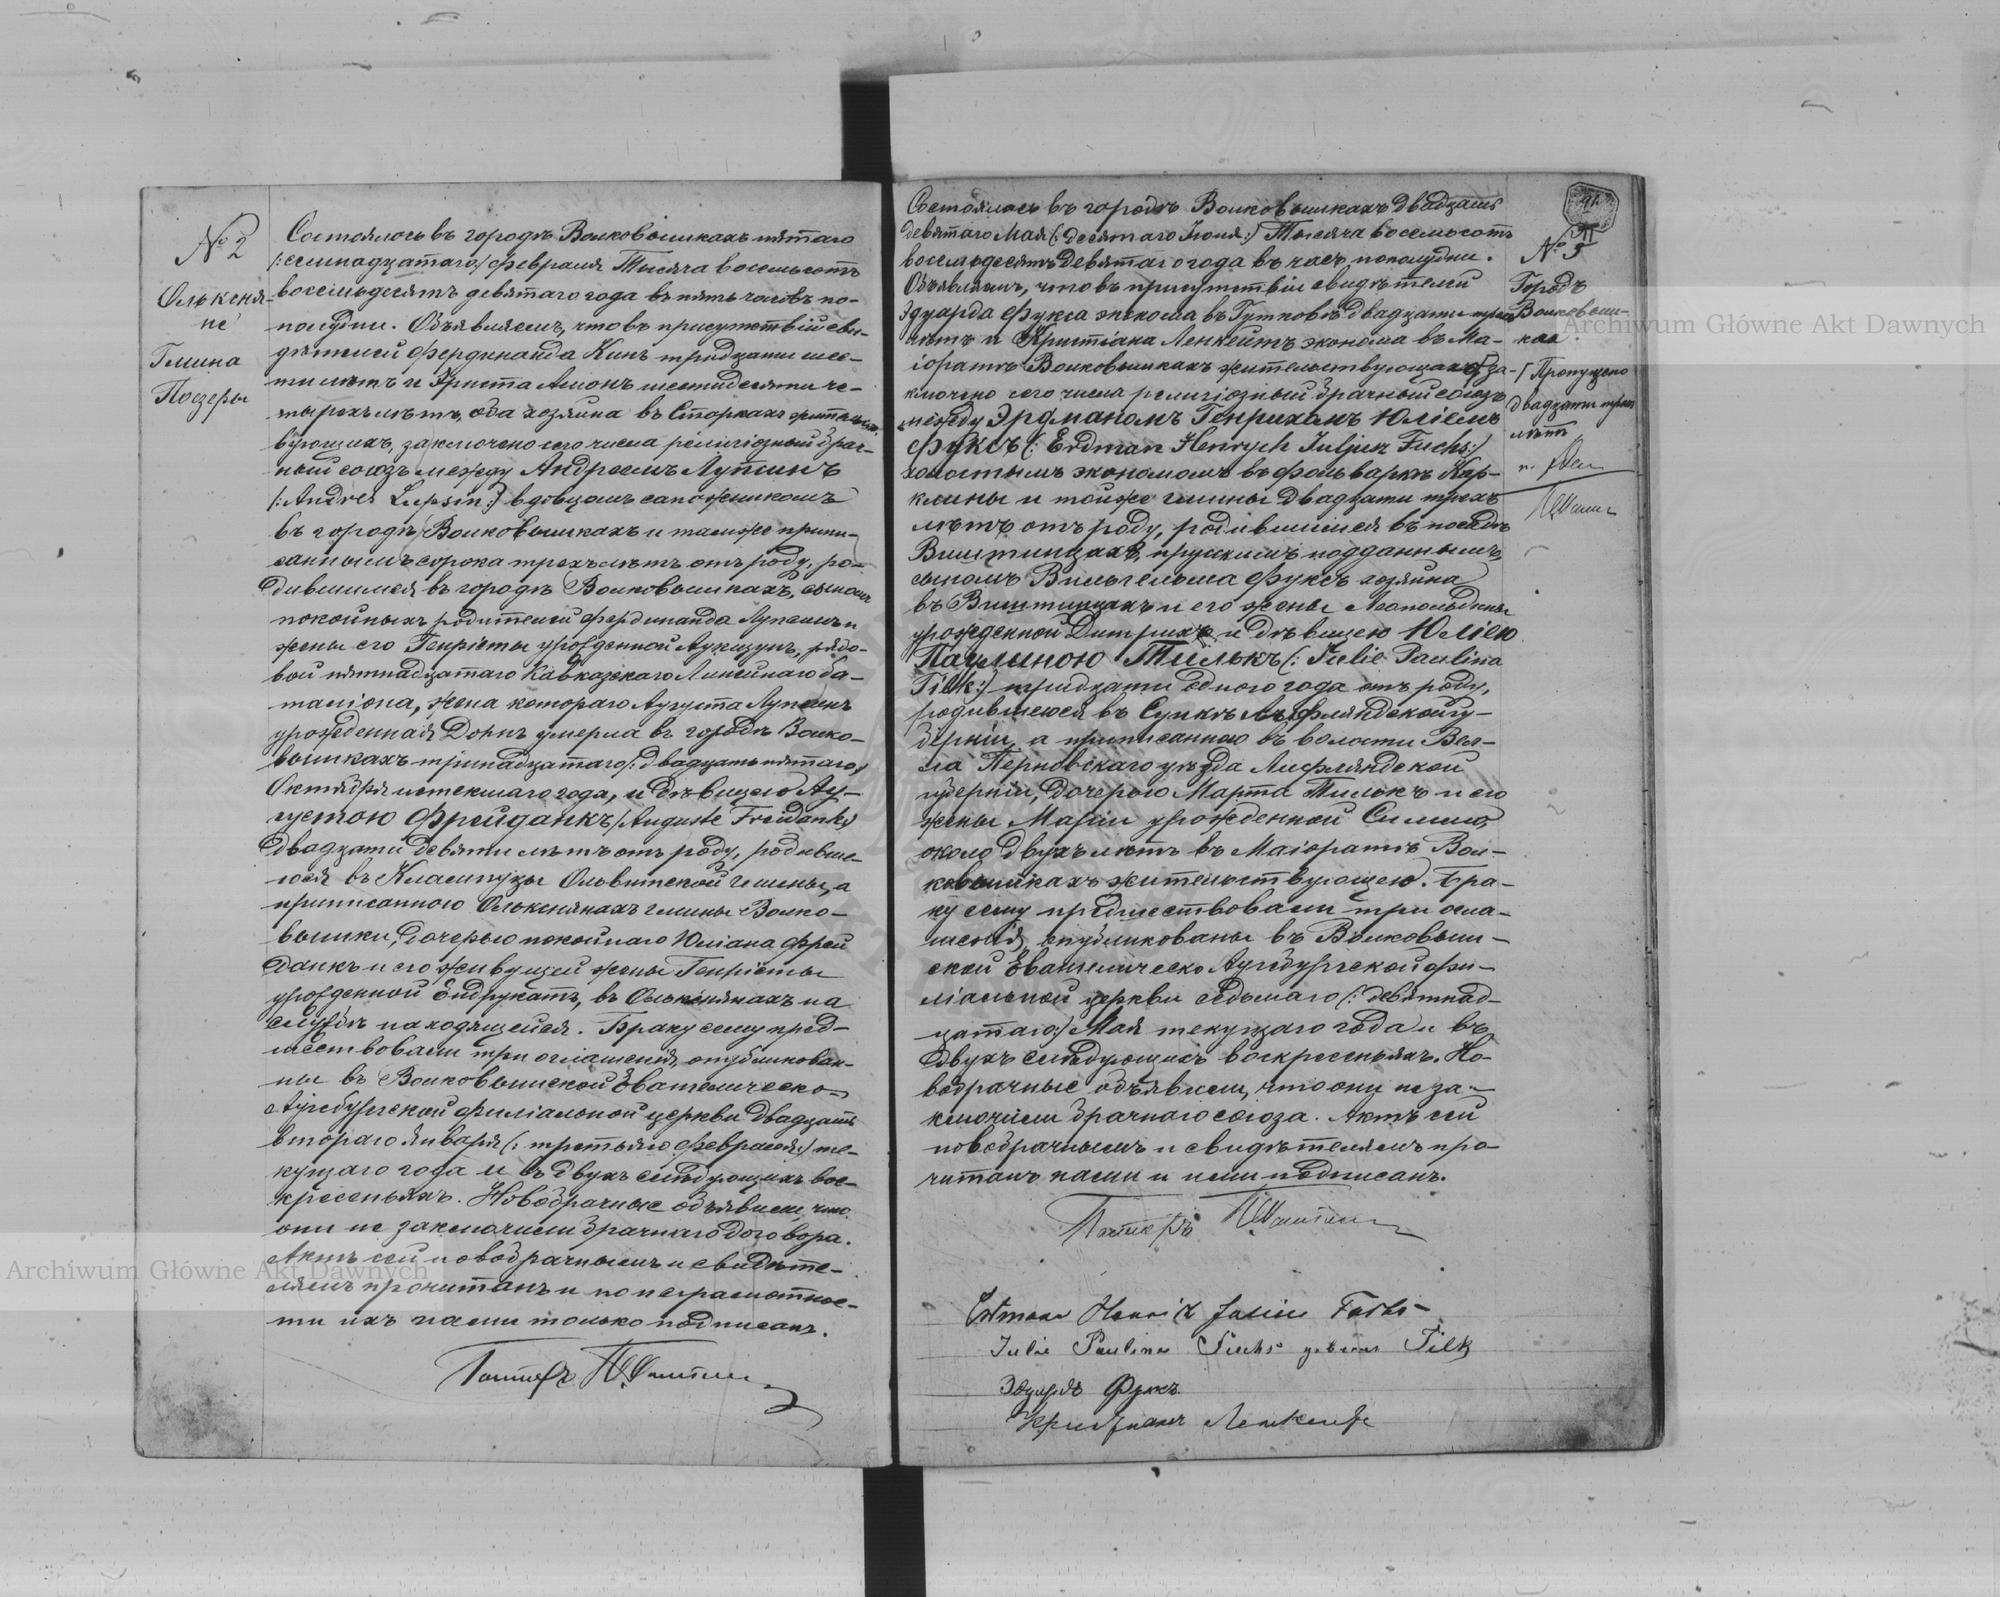 № 2
Олькеня-
не
Гмина
Поезеры
Состоялось въ городѣ Волковышкахъ пятаго
/:семнадцатаго/ Февраля Тысяча восемьсотъ
восемьдесятъ девятаго года въ пять часовъ по-
полудни. Объявляемъ, что въ присутствіи сви-
дѣтелей Фердинанда Кинъ тридцати шес-
ти лѣтъ и Христа шестидесяти че-
тырехъ лѣтъ, оба хозяина въ Сторкахъ жительст-
вующихъ, заключено сего числа религіозный брач-
ный союзъ между Андреемъ Лупшинъ
/:Andres Lupsin:/ вдовцомъ сапожникомъ
въ городѣ Волковышкахъ и тамже припи-
саннымъ сорока трехъ лѣтъ отъ роду, ро-
дившимся въ городѣ Волковышкахъ, сыномъ
покойныхъ родителей Фердинанда Лупшинъ и
жены его Генріеты урожденной рядо-
вой пятнадцатаго Кавказскаго Линейнаго ба-
таліона, жена котораго Августа Лупшинъ
урожденная Дорнъ умерла въ городѣ Волко-
вышкахъ тринадцатаго/:двадцать пятаго/
Октября истекшаго года, и дѣвицею Ав-
густою Фрейданкъ /Auguste Freidank/
двадцати девяти лѣтъ отъ роду, родивше-
юся въ Олвитской гмины, а
приписанною Олькенянахъ гмины Волко-
вышки, дочерью покойнаго Юліана Фрей
данкъ и его живущей жены Генріеты
урожденной Ендрукатъ, въ Олькенянахъ на
службѣ находящейся. Браку сему пред-
шествовали три оглашенія, опубликован-
ны въ Волковышской Евангелическо-
Аугсбургской филіальной церкви двадцать
втораго Января (: третьяго Февраля:) те-
кущаго года и въ двухъ слѣдующихъ вос-
кресеньяхъ. Новобрачные объявили, что
они не заключили брачнаго договора.
Актъ сей новобрачнымъ и свидѣте-
лямъ прочитанъ и по неграмотнос-
ти ихъ нами только подписанъ.
Пасторъ
91
№ 3
Городъ
Волковыш-
ки
/ Пропущено
двадцати трехъ
лѣтъ
Состоялось въ городѣ Волковышкахъ двадцать
девятаго Мая (:десятаго Іюня:) Тысяча восемьсотъ
восемьдесятъ девятаго года въ часъ пополудни.
Объявляемъ, что въ присутствіи свидѣтелей
Эдуарда Фукса эконома въ Гутковѣ двадцати трехъ
лѣтъ и Христіана Ленкейтъ эконома въ Ма-
іоратѣ Волковышкахъ жительствующихъ за-
ключено сего числа религіозный брачный союзъ
между Эрдманомъ Генрихомъ Юліемъ
Фуксъ (: Erdman Henrych Juljusz Fuchs:)
холостымъ экономомъ въ фольваркѣ Кар-
клины и тойже гмины двадцати трехъ
лѣтъ отъ роду, родившимся въ посадѣ
Виштинцахъ, прусскимъ подданнымъ,
сыномъ Вильгельма Фуксъ хозяина
въ Виштинцахъ и его жены Леопольдины
урожденной Дитрихъ и дѣвицею Юліею
Паулиною Тилькъ (: Julie Paulina
Tilk:) тридцати одного года отъ роду,
родившеюся въ Лифляндской гу-
берніи, а приписанною въ волости
Перновскаго уѣзда Лифляндской
губерніи, дочерью Марта Тилькъ и его
жены Маріи урожденной
около двухъ лѣтъ въ Маіоратѣ Вол-
ковышкахъ жительствующею. Бра-
ку сему предшествовали три огла-
шенія, опубликованы въ Волковыш-
ской Евангелическо Аугсбургской фи-
ліальной церкви седьмаго (: девятнад-
цатаго:) Мая текущаго года и въ
двухъ слѣдующихъ воскресеньяхъ. Но-
вобрачные объявили, что они не за-
ключили брачнаго союза. Актъ сей
новобрачнымъ и свидѣтелямъ про-
читанъ нами и ими подписанъ.
Пасторъ
Julie Pauline Fuchs geboren Tilk
Эдуардъ Фуксъ
Христіанъ Ленкейтъ
Archiwum Główne Akt Dawnych
Archiwum Główne Akt Dawnych